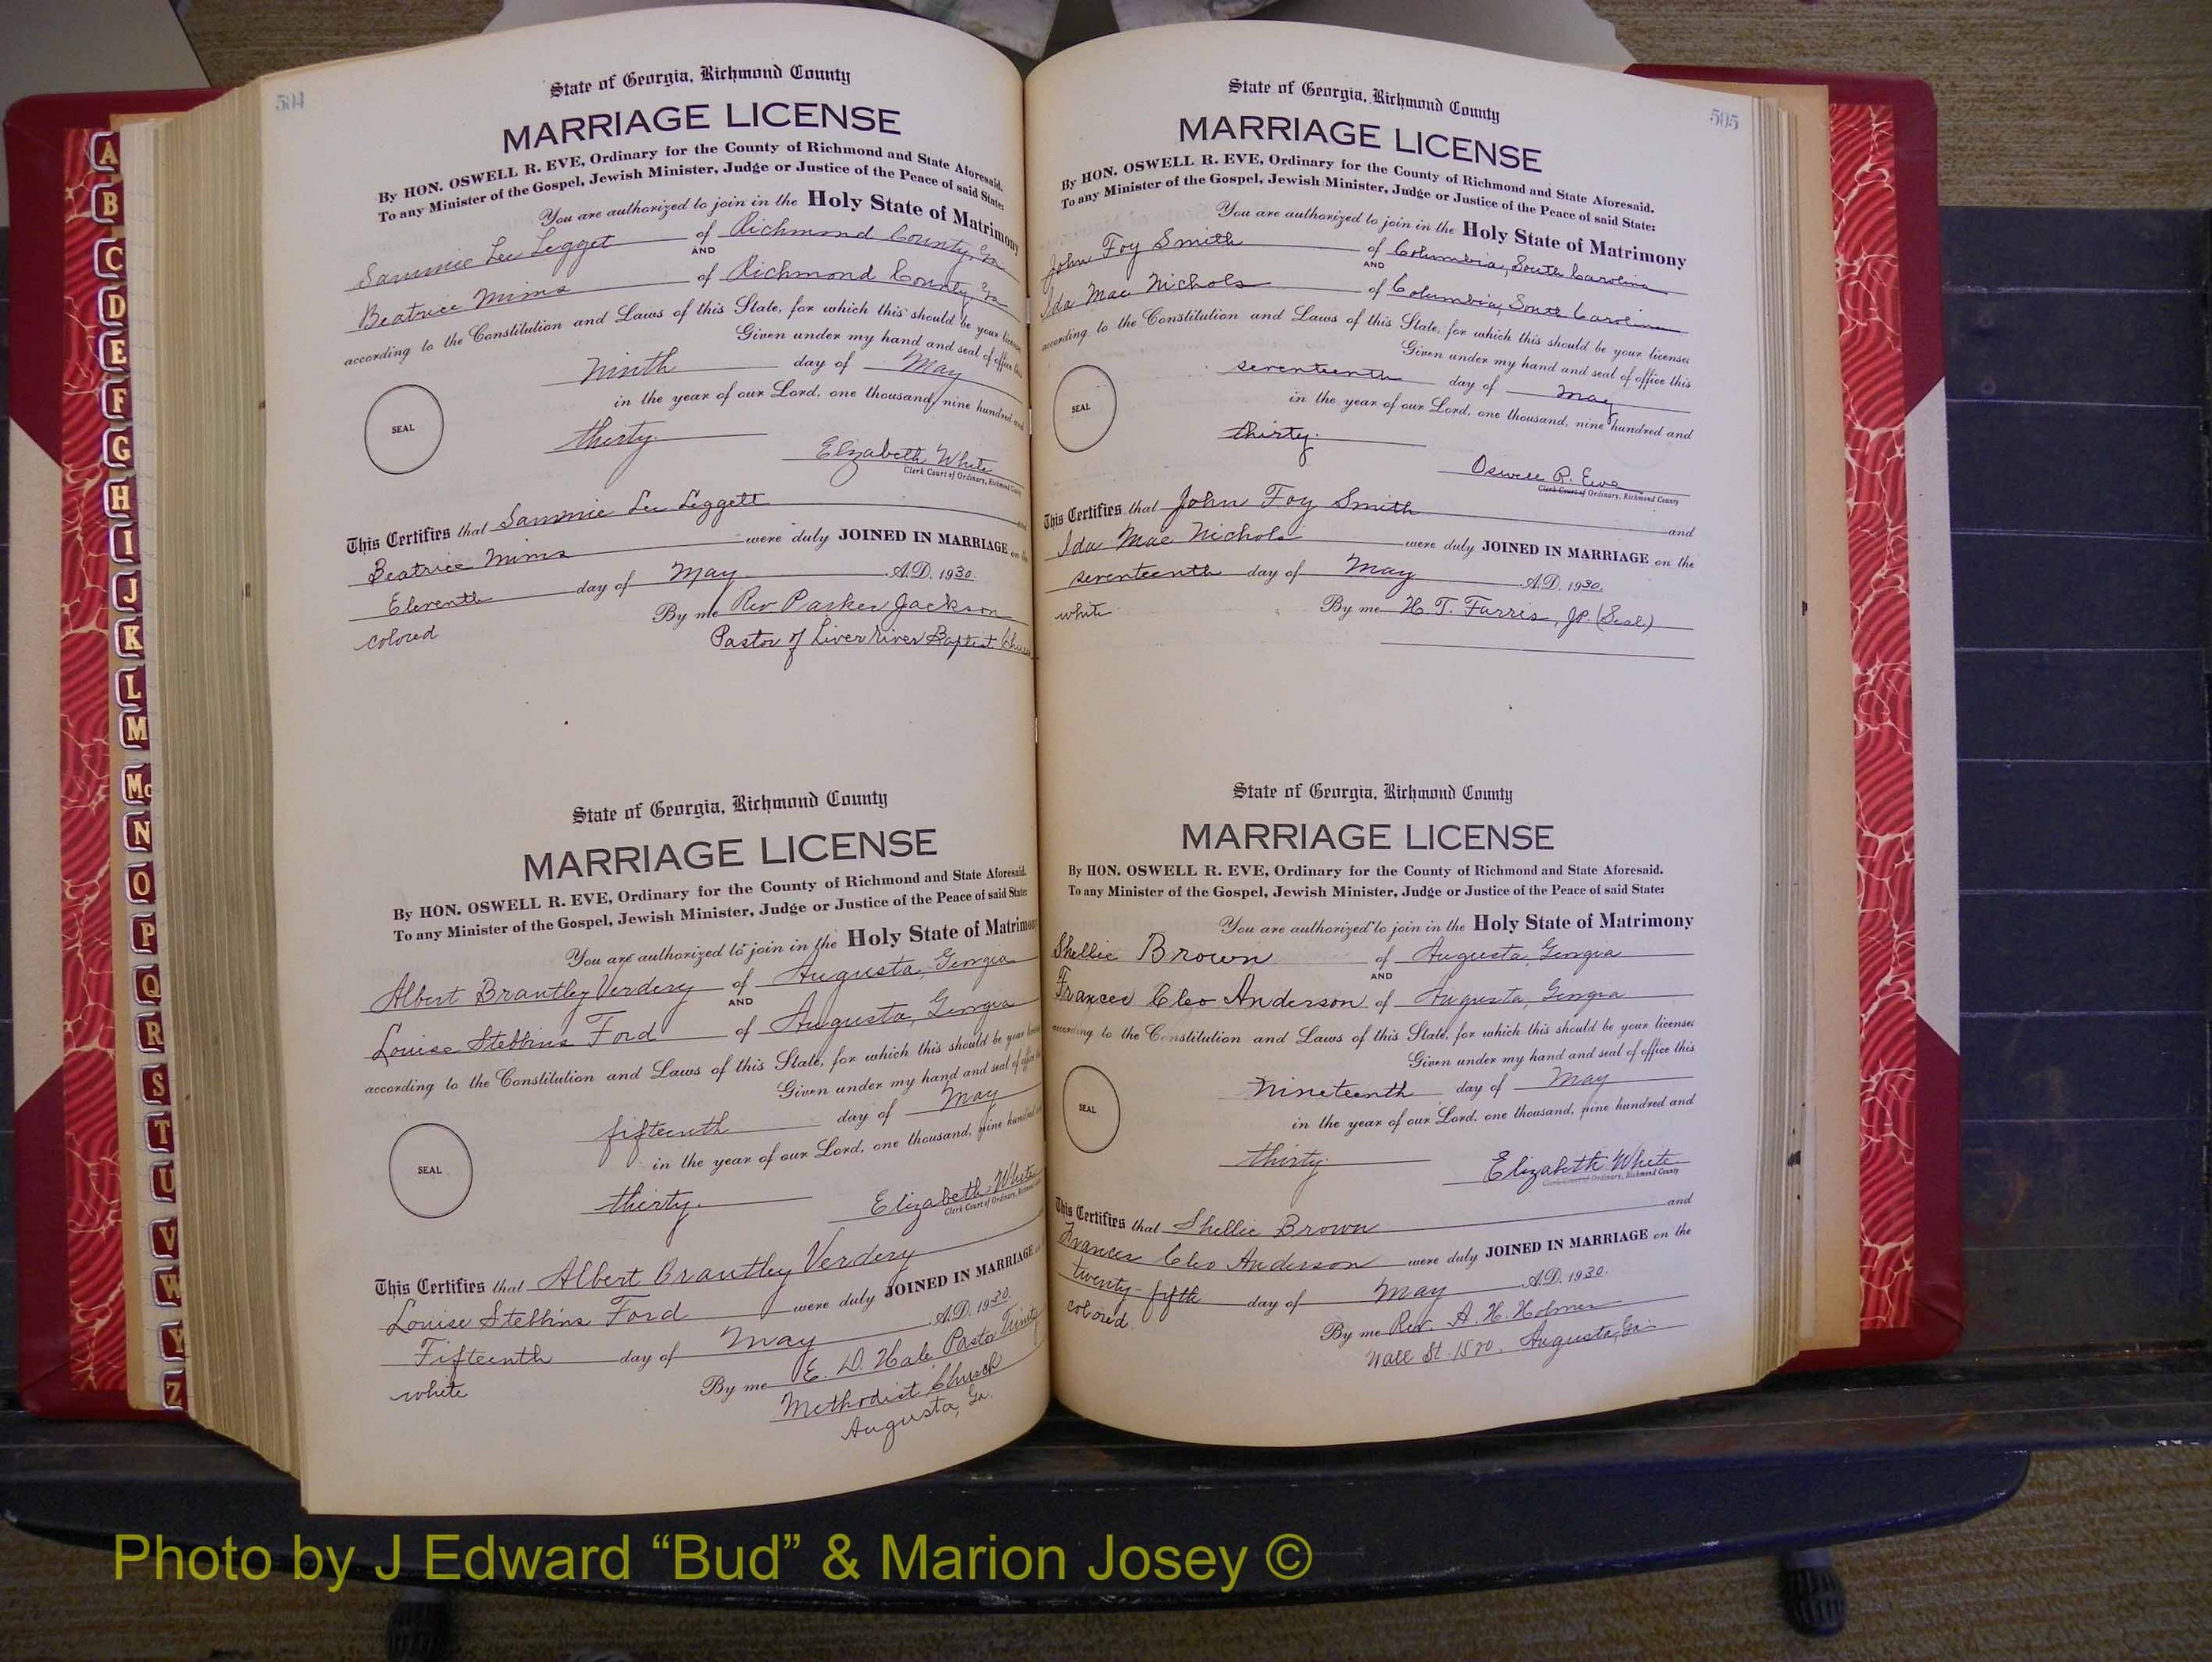 504
State of Georgia, Richmond County
MARRIAGE LICENSE
By HON. OSWELL R. EVE, Ordinary for the County of Richmond and State Aforesaid.
To any Minister of the Gospel, Jewish Minister, Judge or Justice of the Peace of said State:
You are authorized to join in the Holy State of Matrimony
Sammie Lee Legget of Richmond County, Ga
AND
Beatrice Mims of Richmond County, Ga
according to the Constitution and Laws of this State, for which this should be your license
Given under my hand and seal of office this
ninth day of May
in the year of our Lord, one thousand, nine hundred and
SEAL
thirty.
Elizabeth White
Clerk Court of Ordinary, Richmond County
This Certifies that Sammie Lee Leggett and
Beatrice Mims were duly JOINED IN MARRIAGE on the
Eleventh day of May A.D. 1930.
colored By me Rev Parker Jackson
Pastor of Liver river Baptist
State of Georgia, Richmond County
MARRIAGE LICENSE
By HON. OSWELL R. EVE, Ordinary for the County of Richmond and State Aforesaid.
To any Minister of the Gospel, Jewish Minister, Judge or Justice of the Peace of said State:
You are authorized to join in the Holy State of Matrimony
Albert Brantley Verdery of Augusta, Georgia
AND
Louise Stebbins Ford of Augusta, Georgia
according to the Constitution and Laws of this State, for which this should be your
Given under my hand and seal of office
fifteenth day of May
in the year of our Lord, one thousand, nine hundred
SEAL
thirty.
Elizabeth White
Clerk Court of Ordinary, Richmond
This Certifies that Albert Brantley Verdery
Louise Stebbins Ford were duly JOINED IN MARRIAGE
Fifteenth day of May A.D. 1930.
white By me E. D. Hale, Pastor Trinity
Methodist Church
Augusta, Ga.
505
State of Georgia, Richmond County
MARRIAGE LICENSE
By HON. OSWELL R. EVE, Ordinary for the County of Richmond and State Aforesaid.
To any Minister of the Gospel, Jewish Minister, Judge or Justice of the Peace of said State:
You are authorized to join in the Holy State of Matrimony
John Foy Smith of Columbia, South Carolina
AND
Ida Mae Nichols of Columbia, South Carolina
according to the Constitution and Laws of this State, for which this should be your license;
Given under my hand and seal of office this
seventeenth day of May
in the year of our Lord, one thousand, nine hundred and
SEAL
thirty.
Oswell R. Eve
Clerk Court of Ordinary, Richmond County
This Certifies that John Foy Smith and
Ida Mae Nichols were duly JOINED IN MARRIAGE on the
seventeenth day of May A.D. 1930.
white By me H. T. Farris, JP. (Seal)
State of Georgia, Richmond County
MARRIAGE LICENSE
By HON. OSWELL R. EVE, Ordinary for the County of Richmond and State Aforesaid.
To any Minister of the Gospel, Jewish Minister, Judge or Justice of the Peace of said State:
You are authorized to join in the Holy State of Matrimony
Shellie Brown of Augusta, Georgia
AND
Frances Cleo Anderson of Augusta, Georgia
according to the Constitution and Laws of this State, for which this should be your license;
Given under my hand and seal of office this
Nineteenth day of May
in the year of our Lord, one thousand, nine hundred and
SEAL
thirty.
Elizabeth White
Clerk Court of Ordinary, Richmond County
This Certifies that Shellie Brown and
Frances Cleo Anderson were duly JOINED IN MARRIAGE on the
twenty-fifth day of May A.D. 1930.
colored. By me Rev. A. H. Holmes
Wall St. 1520. Augusta, Ga.
A
B
C
D
E
F
G
H
I
J
K
L
M
Mc
N
O
P
Q
R
S
T
U
V
W
Y
Z
Photo by J Edward “Bud” & Marion Josey ©